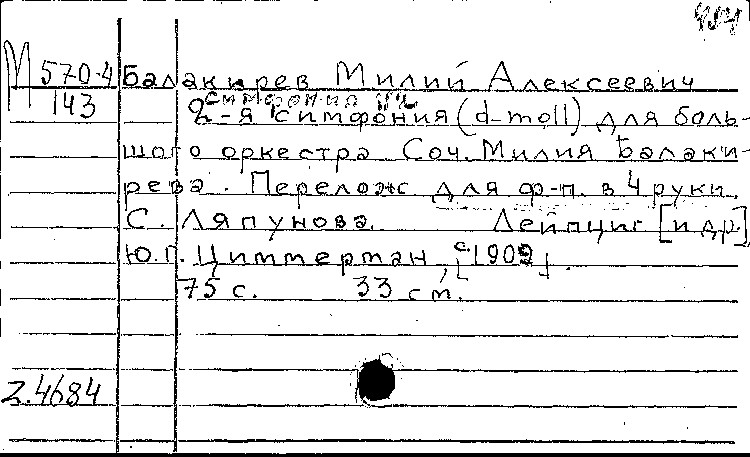 М 570-4 Балакирев Милий Алексеевич
143 Симфония №2
2-я симфония (d-moll) для боль-
шого оркестра Соч. Милия Балаки-
рева. Перелож для ф-п. в 4 руки
С. Ляпунова. Лейпциг [и др.]
Ю.Г. Циммерман, [с. 1909].
75 с. 33 см.
2.4684